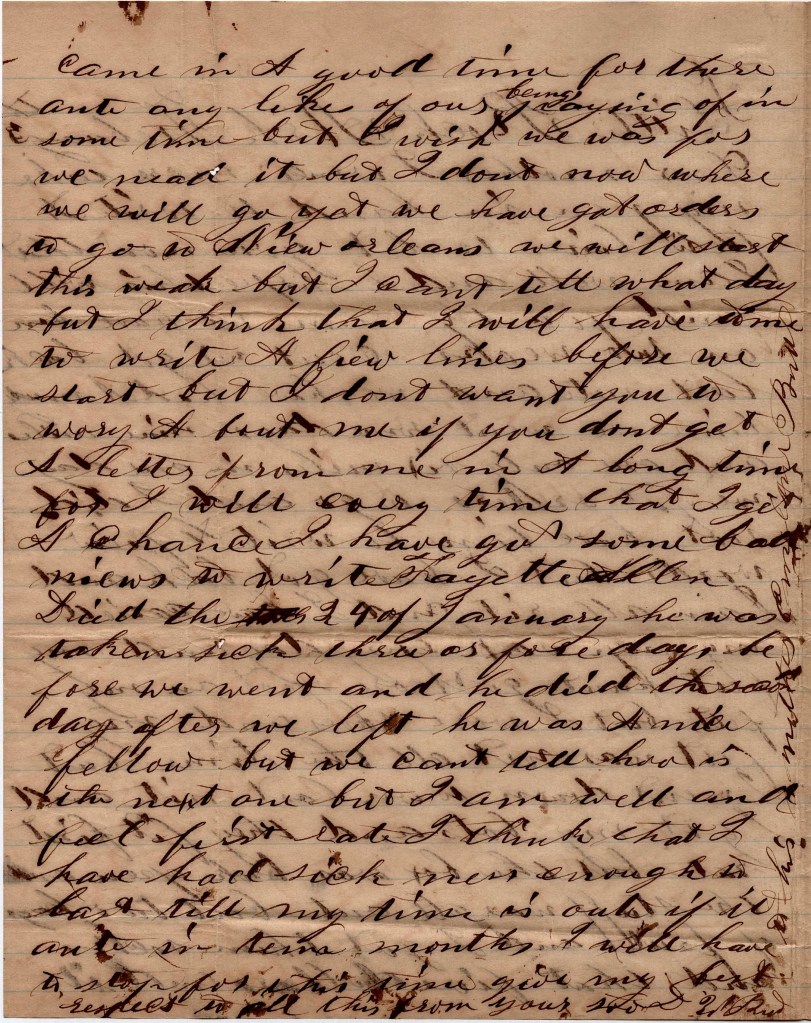 came in A good time for there
ante any like of our being paying of in
some time but I wish we was for
we nead it but I dont now where
we will go yat we have got orders
to go to Niew orleans we will start
this weak but I cant tell what day
but I think that I will have time
to write A fiew lines before we
start but I dont want you to
wory A bout me if you dont get
A letter from me in A long time
for I will every time that I get
A chance I have got some bad
niews to writ Fayette Allen
Died the 24 of January he was
taken sick three or fore days be
fore we went and he died the
day after we left he was A nice
fellow but we cant tell hoo is
the next one but I am well and
feel first rate I think that I
have had sick ness enough to
last till my time is out if it
ante in tenn months I will have
to stop for this time give my best
respect to all this from your son
to his mother